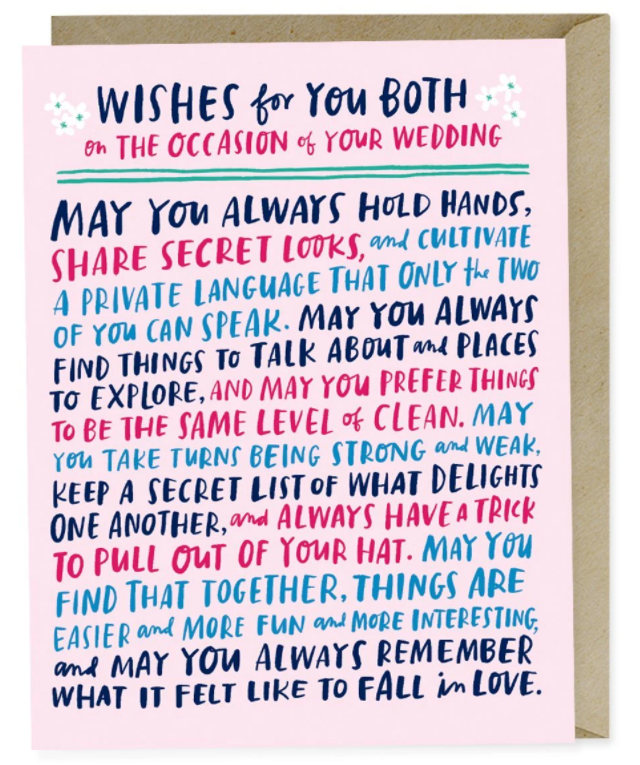 WISHES for YOU BOTH
on THE OCCASION of YOUR WEDDING
MAY YOU ALWAYS HOLD HANDS,
SHARE SECRET LOOKS, and CULTIVATE
A PRIVATE LANGUAGE THAT ONLY the TWO
OF YOU CAN SPEAK. MAY YOU ALWAYS
FIND THINGS TO TALK ABOUT and PLACES
TO EXPLORE, AND MAY YOU PREFER THINGS
TO BE THE SAME LEVEL of CLEAN. MAY
YOU TAKE TURNS BEING STRONG and WEAK,
KEEP A SECRET LIST OF WHAT DELIGHTS
ONE ANOTHER, and ALWAYS HAVE A TRICK
TO PULL OUT OF YOUR HAT. MAY YOU
FIND THAT TOGETHER, THINGS ARE
EASIER and MORE FUN and MORE INTERESTING,
and MAY YOU ALWAYS REMEMBER
WHAT IT FELT LIKE TO FALL in LOVE.